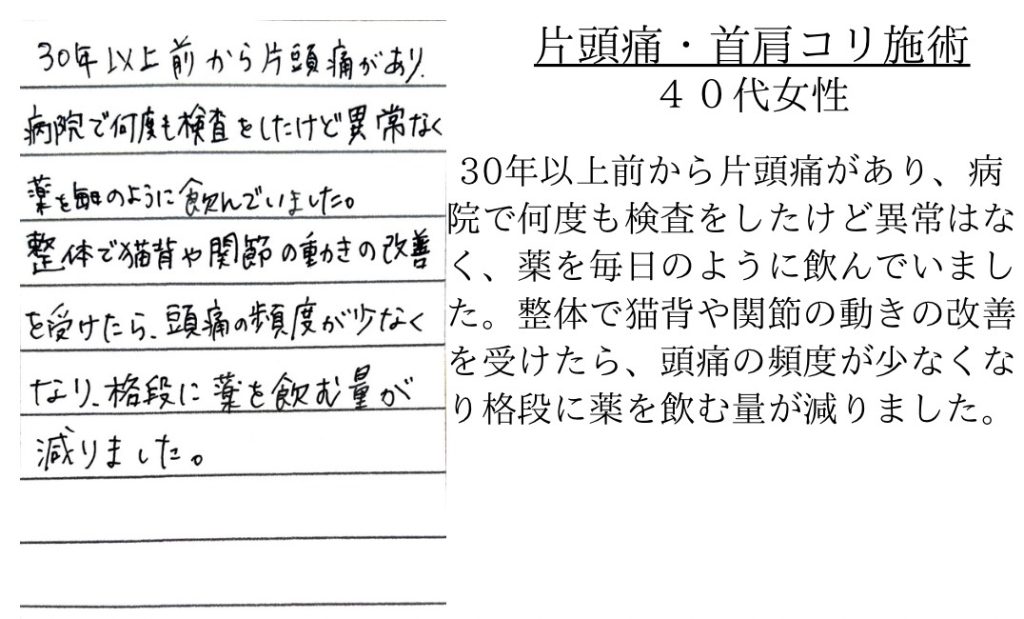 30年以上前から片頭痛があり、
病院で何度も検査をしたけど異常なく
薬を毎日のように飲んでいました。
整体で猫背や関節の動きの改善
を受けたら、頭痛の頻度が少なく
なり、格段に薬を飲む量が
減りました。
片頭痛・首肩コリ施術
４０代女性
30年以上前から片頭痛があり、病
院で何度も検査をしたけど異常はな
く、薬を毎日のように飲んでいまし
た。整体で猫背や関節の動きの改善
を受けたら、頭痛の頻度が少なくな
り格段に薬を飲む量が減りました。